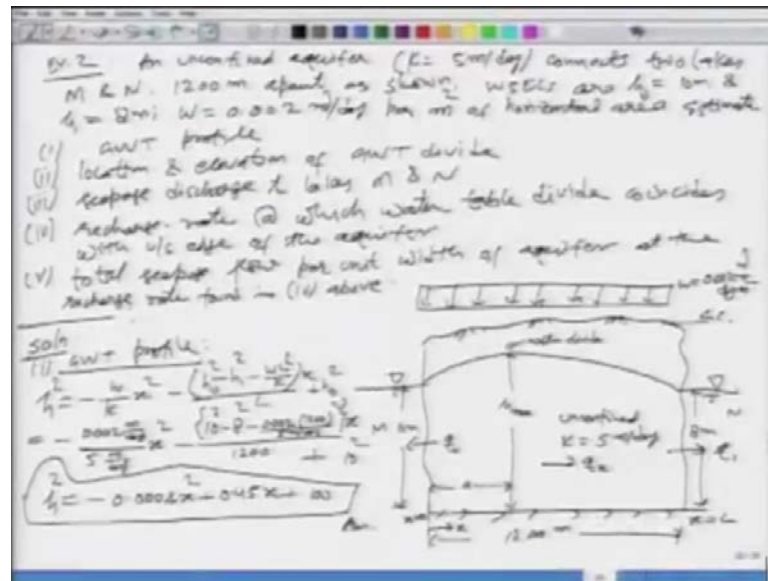 Ex.2 An unconfined aquifer (K = 5m/day) connects two lakes
M & N. 1200 m apart, as shown. WSELs are h₀ = 10m &
h₁ = 8m; W = 0.002 m/day per m² of horizontal area estimate
(i) GWT profile
(ii) location & elevation of GWT divide
(iii) seepage discharge to lakes M & N
(iv) recharge rate @ which water table divide coincides
with u/s edge of the aquifer
(v) total seepage flow per unit width of aquifer at the
recharge rate found in (iv) above
W = 0.002
G.L.
water divide
Soln
(i) GWT profile:
h² = - W/K x² - (h₀² - h₁² - WL²/K)x / L + h₀²
= - 0.002/5 x² - (10² - 8² - 0.002(1200)²)x / 1200 + 10²
h² = -0.0004x² + 0.45x + 100
Ans
M 10m
q₀
h max
unconfined
K = 5 m/day
q x
8m
N
q₁
a
x=0
x
x=L
1200 m